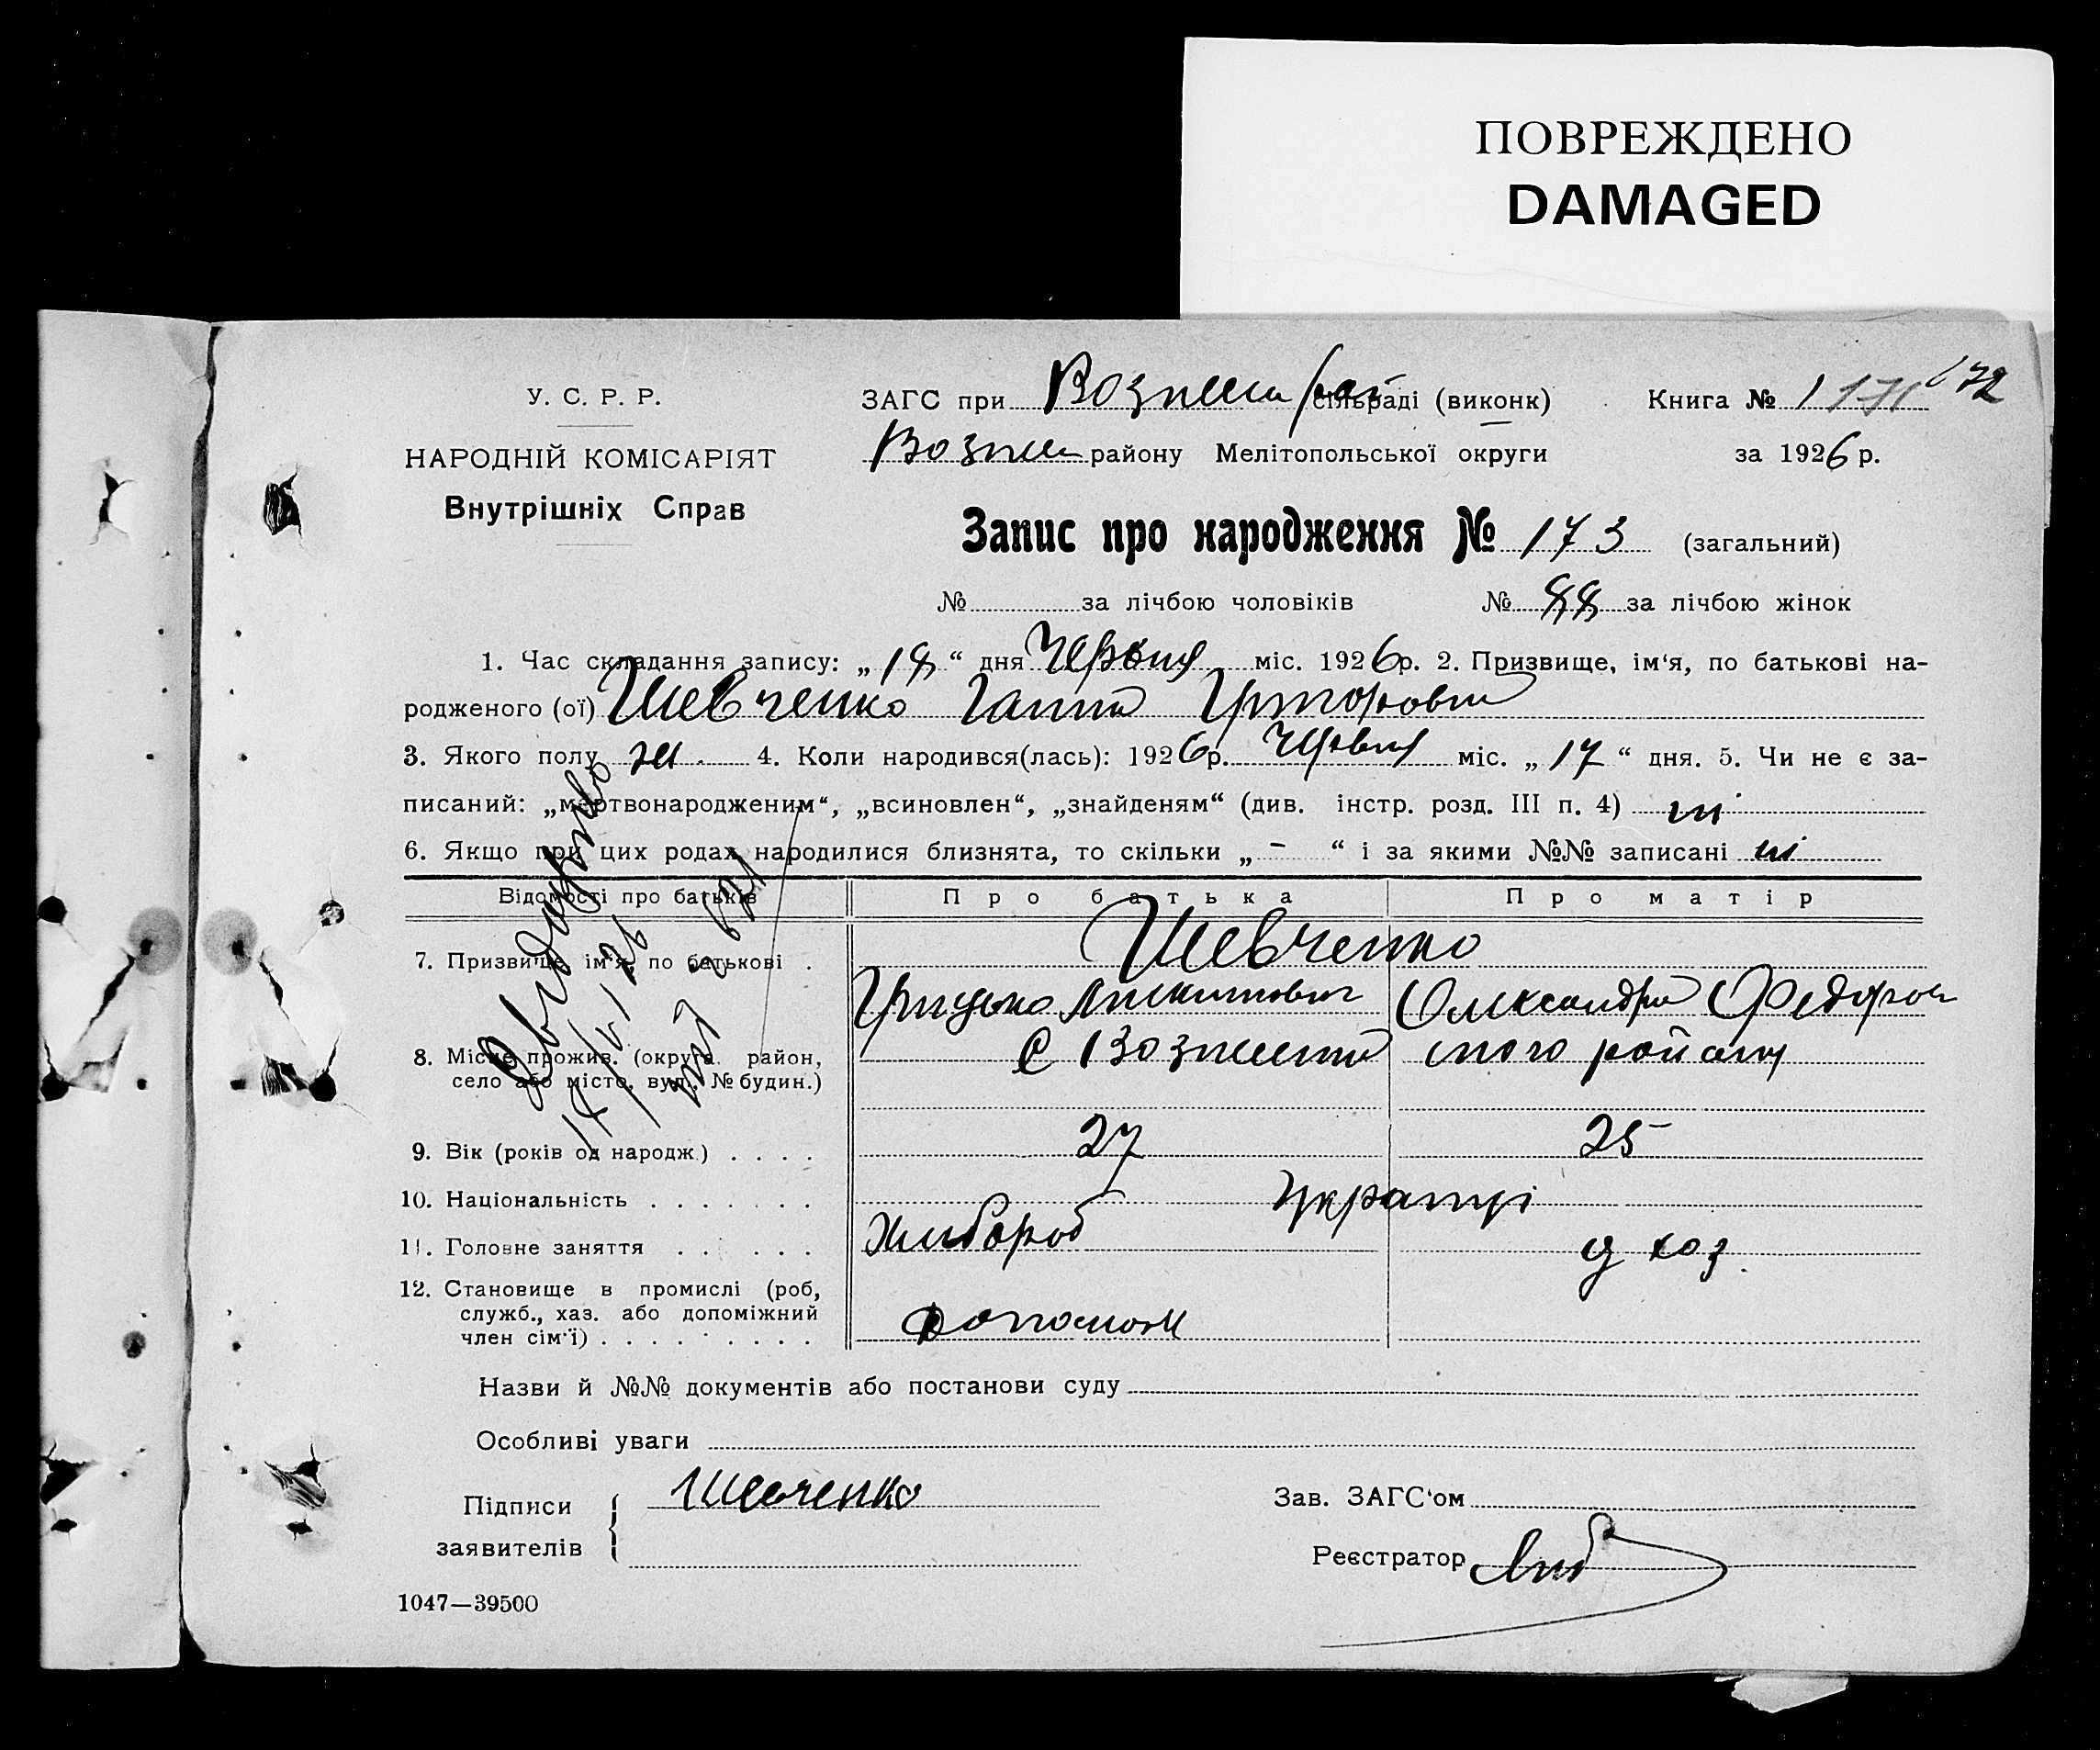 ПОВРЕЖДЕНО
DAMAGED
У. С. Р. Р.
НАРОДНІЙ КОМІСАРІЯТ
Внутрішніх Справ
ЗАГС при Вознесен рай сільраді (виконк)
Книга № 1 171 172
Вознес району Мелітопольської округи
за 1926 р.
Запис про народження № 173 (загальний)
№ за лічбою чоловіків № 88 за лічбою жінок
1. Час складання запису: „18“ дня Червня міс. 1926р. 2. Призвище, ім‘я, по батькові на-
родженого (ої) Шевченко Ганна Григоровна
3. Якого полу жі. 4. Коли народився(лась): 1926р. Червня міс. „17“ дня. 5. Чи не є за-
писаний: „мертвонародженим“, „всиновлен“, „знайденям“ (див. інстр. розд. III п. 4) ні
6. Якщо при цих родах народилися близнята, то скільки „ - “ і за якими №№ записані ні
Відомості про батьків Про батька Про матір
7. Призвище, ім‘я, по батькові . Шевченко
Грицько Микитович Олександра Федоров
8. Місце прожив. (округа. район,
село або місто, вул., № будин.)
с Вознесенка того району
9. Вік (років од народж.) . . . . 27 25
10. Національність . . . . . . . Українці
11. Головне заняття . . . . . . Хлібороб д хоз.
12. Становище в промислі (роб,
служб., хаз. або допоміжний
член сім‘ї) . . . . . . . . . допомож
Назви й №№ документів або постанови суду
Особливі уваги
Підписи
заявителів
Шевченко
Зав. ЗАГС‘ом
Реєстратор
1047—39500